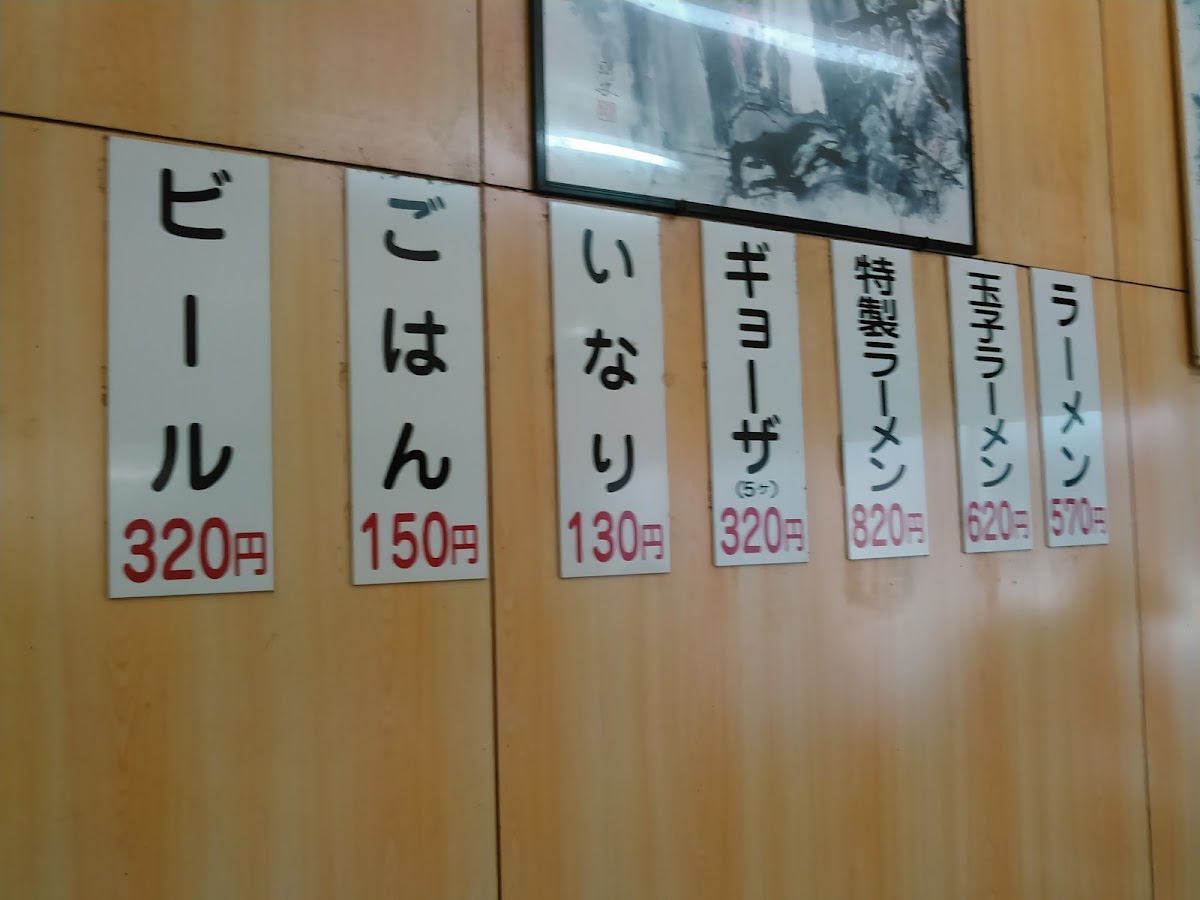 ラーメン
570円
玉子ラーメン
620円
特製ラーメン
820円
ギョーザ
(5ヶ)
320円
いなり
130円
ごはん
150円
ビール
320円